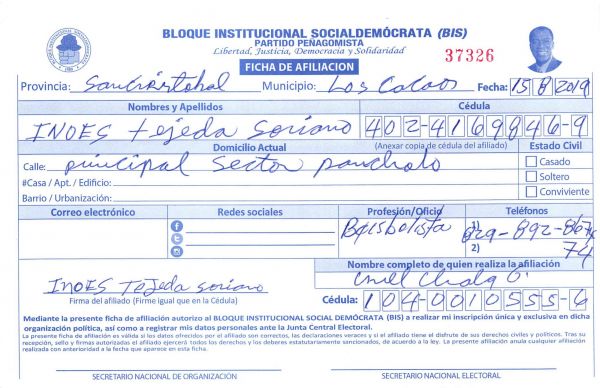 BLOQUE INSTITUCIONAL SOCIALDEMÓCRATA (BIS)
PARTIDO PEÑAGOMISTA
Libertad, Justicia, Democracia y Solidaridad
37326
FICHA DE AFILIACION
Provincia: San Cristobal Municipio: Los Cacaos Fecha: 15/8/2019
Nombres y Apellidos Cédula
INOES tejeda Soriano 402-4169846-9
Domicilio Actual (Anexar copia de cédula del afiliado) Estado Civil
Calle: principal sector pancholo Casado
#Casa / Apt. / Edificio: Soltero
Barrio / Urbanización: Conviviente
Correo electrónico Redes sociales Profesión/Oficio Teléfonos
Beisbolista 1) 829-892-867
2) 74
Nombre completo de quien realiza la afiliación
INOES Tejeda Soriano
Firma del afiliado (Firme igual que en la Cédula) Cédula: 104-0010555-6
Mediante la presente ficha de afiliación autorizo al BLOQUE INSTITUCIONAL SOCIAL DEMÓCRATA (BIS) a realizar mi inscripción única y exclusiva en dicha
organización política, así como a registrar mis datos personales ante la Junta Central Electoral.
La presente ficha de afiliación es válida si los datos ofrecidos por el afiliado son correctos, las declaraciones veraces y si el afiliado tiene el disfrute de sus derechos civiles y políticos. Tras su
recepción, sello y firmas autorizadas el afiliado ejercerá todos los derechos y los deberes estatutariamente sancionados, de acuerdo a la ley. La presente afiliación anula cualquier afiliación
realizada con anterioridad a la fecha que aparece en esta ficha.
SECRETARIO NACIONAL DE ORGANIZACIÓN SECRETARIO NACIONAL ELECTORAL